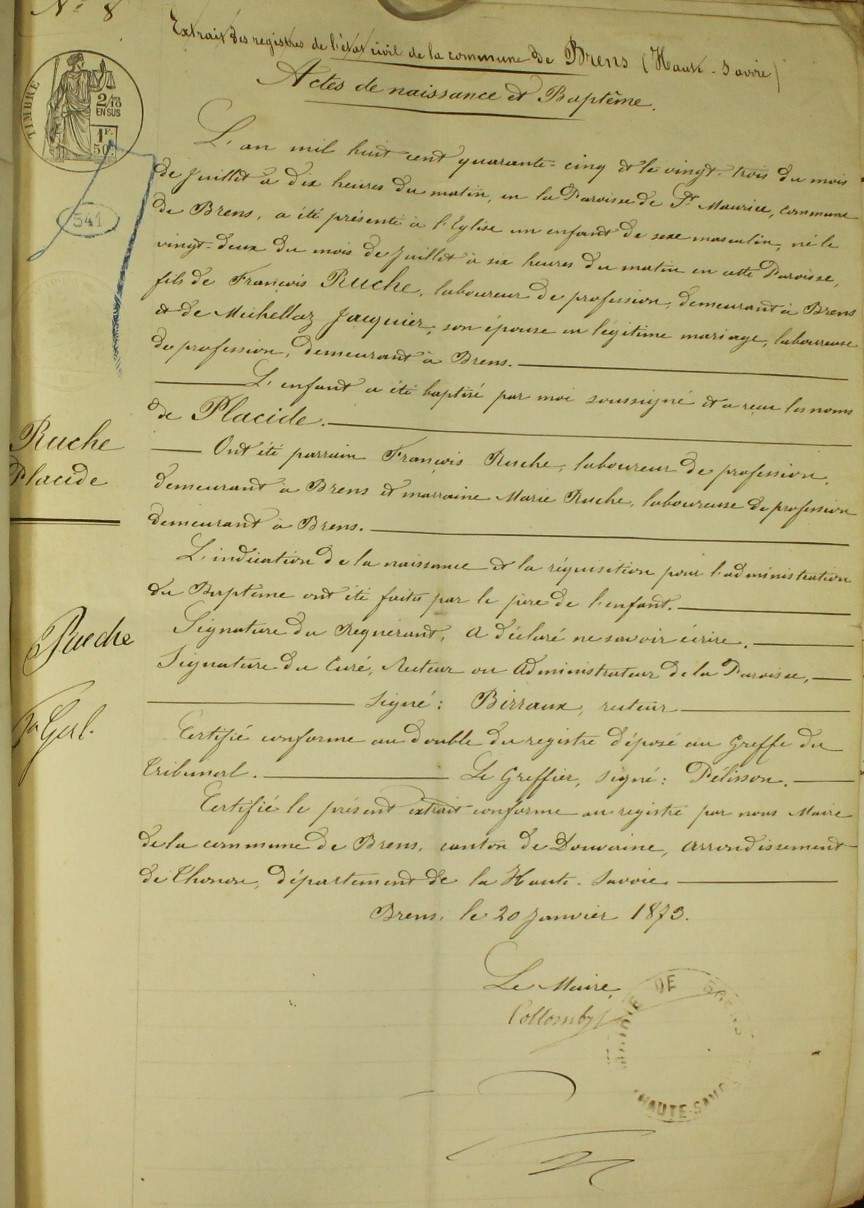 N° 8
Extrait des registres de l'état civil de la commune de Brens (Haute-Savoie)
Actes de naissance et Baptême.
TIMBRE
2/10
EN SUS
1F
50c
541
L'an mil huit cent quarante-cinq et le vingt-trois du mois
de Juillet à dix heures du matin, en la Paroisse de St Maurice, commune
de Brens, a été présenté à l'Eglise un enfant de sexe masculin, né le
vingt-deux du mois de Juillet à six heures du matin en cette Paroisse,
fils de François Ruche, laboureur de profession, demeurant à Brens
et de Michellaz Jacquier, son épouse en légitime mariage, laboureuse
de profession, demeurant à Brens.
L'enfant a été baptisé par moi soussigné et a reçu les noms
de Placide.
Ruche
Placide
Ont été parrain François Ruche, laboureur de profession,
demeurant à Brens et marraine Marie Ruche, laboureuse de profession
demeurant à Brens.
L'indication de la naissance et la réquisition pour l'administration
du Baptême ont été faites par le père de l'enfant.
Ruche
Signature du Requérant, a déclaré ne savoir écrire.
Signature du Curé, Recteur ou Administrateur de la Paroisse,
Signé: Birraux, recteur
Certifié conforme au double du registre déposé au Greffe du
Tribunal. Le Greffier, signé: Pélisson.
Certifié le présent extrait conforme au registre par nous Maire
de la commune de Brens, canton de Douvaine, arrondissement
de Thonon, département de la Haute-Savoie
Brens, le 20 Janvier 1873.
Le Maire,
Collomby
MAIRIE DE BRENS
HAUTE-SAVOIE